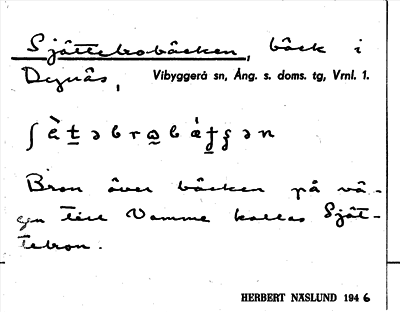 Sjåttebrobäcken, bäck i
Dynäs, Vibyggerå sn, Ång. s. doms. tg, Vrnl. 1.
Bron över bäcken på vä-
gen till Vamme kallas Sjåt-
tebron.
HERBERT NÄSLUND 1946